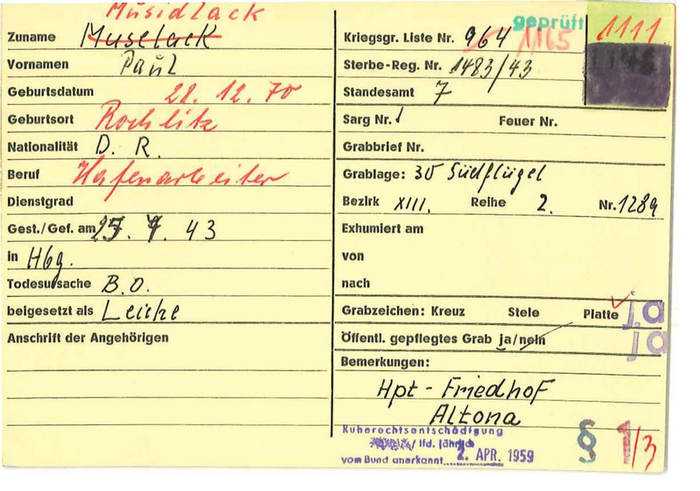 Musidlack
Zuname Muselack
Vornamen Paul
Geburtsdatum 28. 12. 70
Geburtsort Rochlitz
Nationalität D. R.
Beruf Hafenarbeiter
Dienstgrad
Gest./Gef. am 25. 7. 43
in Hbg.
Todesursache B.O.
beigesetzt als Leiche
Anschrift der Angehörigen
geprüft 1111
Kriegsgr. Liste Nr. 964 1165
Sterbe-Reg. Nr. 1483/43
Standesamt 7
Sarg Nr. Feuer Nr.
Grabbrief Nr.
Grablage: 30 Südflügel
Bezirk XIII. Reihe 2. Nr. 128a
Exhumiert am
von
nach
Grabzeichen: Kreuz Stele Platte ja
Öffentl. gepflegtes Grab ja/nein ja
Bemerkungen:
Hpt-Friedhof
Altona
Ruherechtsentschädigung
/ lfd. jährlich
vom Bund anerkannt 2. APR. 1959
§ 1/3